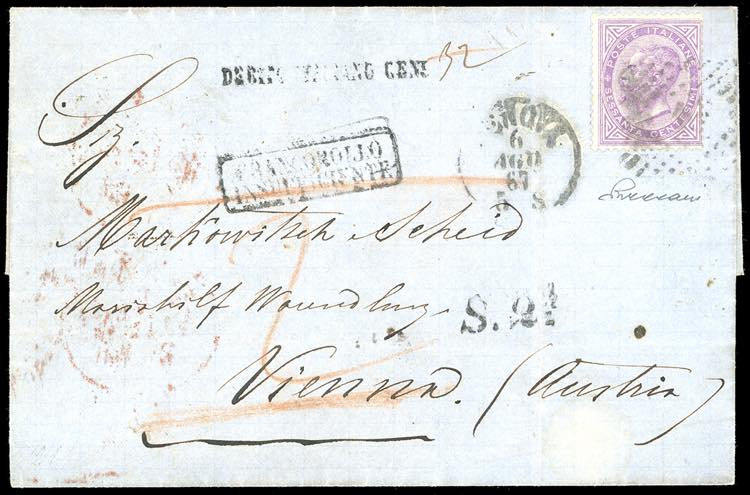 DEBITO ITALIANO CENT 32
POSTE ITALIANE
SESSANTA CENTESIMI
Sig.
GENOVA
6
AGO
67
8
FRANCOBOLLO
INSUFFICIENTE
Markowitsch & Scheid
Mariahilf
S. 2
Vienna. (Austria)